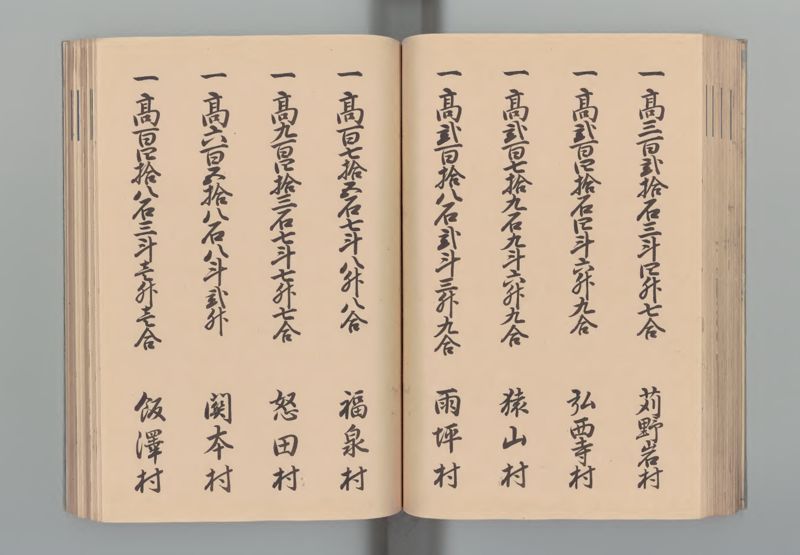 一高三百貳拾石三斗四升七合 苅野岩村
一高貳百四拾石四斗六升九合 弘西寺村
一高貳百七拾九石九斗六升九合 猿山村
一高貳百拾八石貳斗三升九合 雨坪村
一高百七拾五石七斗八升八合 福泉村
一高九百四拾三石七斗七升七合 怒田村
一高六百五拾八石八斗貳升 関本村
一高百四拾八石三斗壱升壱合 飯澤村